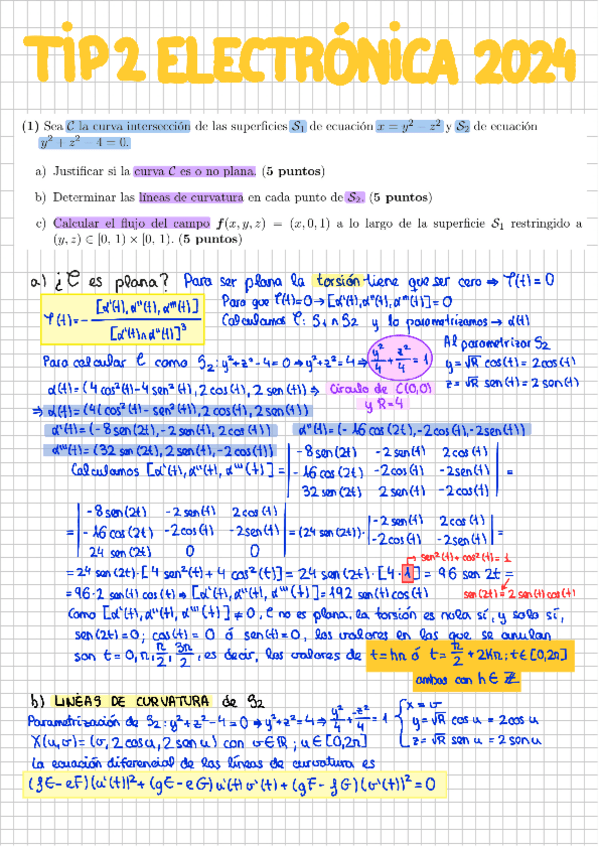 TIP 2 ELECTRÓNICA 2024
(1) Sea C la curva intersección de las superficies S₁ de ecuación x = y² − z² y S₂ de ecuación
y² + z² − 4 = 0.
a) Justificar si la curva C es o no plana. (5 puntos)
b) Determinar las líneas de curvatura en cada punto de S₂. (5 puntos)
c) Calcular el flujo del campo f(x, y, z) = (x, 0, 1) a lo largo de la superficie S₁ restringido a
(y, z) ∈ [0, 1) × [0, 1). (5 puntos)
a) ¿C es plana? Para ser plana la torsión tiene que ser cero ⇒ τ(t) = 0
τ(t) = − [α'(t), α''(t), α'''(t)] / [α'(t) ∧ α''(t)]³
Para que τ(t)=0 → [α'(t), α''(t), α'''(t)] = 0
Calculamos C: S₁ ∩ S₂ y la parametrizamos → α(t)
Para calcular C como S₂: y²+z²−4=0 ⇒ y²+z²=4 ⇒ y²/4 + z²/4 = 1
Al parametrizar S₂
y = √R cos(t) = 2cos(t)
z = √R sen(t) = 2sen(t)
α(t) = (4cos²(t)−4sen²(t), 2cos(t), 2sen(t)) ⇒ círculo de C(0,0)
y R=4
⇒ α(t) = (4(cos²(t)−sen²(t)), 2cos(t), 2sen(t))
α'(t) = (−8sen(2t), −2sen(t), 2cos(t)) α''(t) = (−16cos(2t), −2cos(t), −2sen(t))
α'''(t) = (32sen(2t), 2sen(t), −2cos(t))
Calculamos [α'(t), α''(t), α'''(t)] = | −8sen(2t) −2sen(t) 2cos(t) |
| −16cos(2t) −2cos(t) −2sen(t) | =
| 32sen(2t) 2sen(t) −2cos(t) |
= | −8sen(2t) −2sen(t) 2cos(t) |
| −16cos(2t) −2cos(t) −2sen(t) | = (24sen(2t)) · | −2sen(t) 2cos(t) |
| 24sen(2t) 0 0 | | −2cos(t) −2sen(t) | =
sen²(t)+cos²(t)=1
= 24sen(2t)·[4sen²(t)+4cos²(t)] = 24sen(2t)·[4·1] = 96 sen 2t =
= 96·2 sen(t) cos(t) ⇒ [α'(t), α''(t), α'''(t)] = 192 sen(t) cos(t) sen(2t) = 2sen(t)cos(t)
Como [α'(t), α''(t), α'''(t)] ≠ 0, C no es plana, la torsión es nula sí, y solo sí,
sen(2t)=0; cos(t)=0 ó sen(t)=0, los valores en los que se anulan
son t=0, π, π/2, 3π/2, es decir, los valores de t=hπ ó t=π/2 + 2kπ; t∈[0,2π]
ambas con h∈ℤ
b) LINEAS DE CURVATURA de S₂
Parametrización de S₂: y²+z²−4=0 ⇒ y²+z²=4 ⇒ y²/4 + z²/4 = 1 { x = v
y = √R cos u = 2cos u
X(u,v) = (v, 2cos u, 2sen u) con v∈ℝ; u∈[0,2π] z = √R sen u = 2sen u
La ecuación diferencial de las líneas de curvatura es
(fE−eF)(u'(t))² + (gE−eG)u'(t)v'(t) + (gF−fG)(v'(t))² = 0